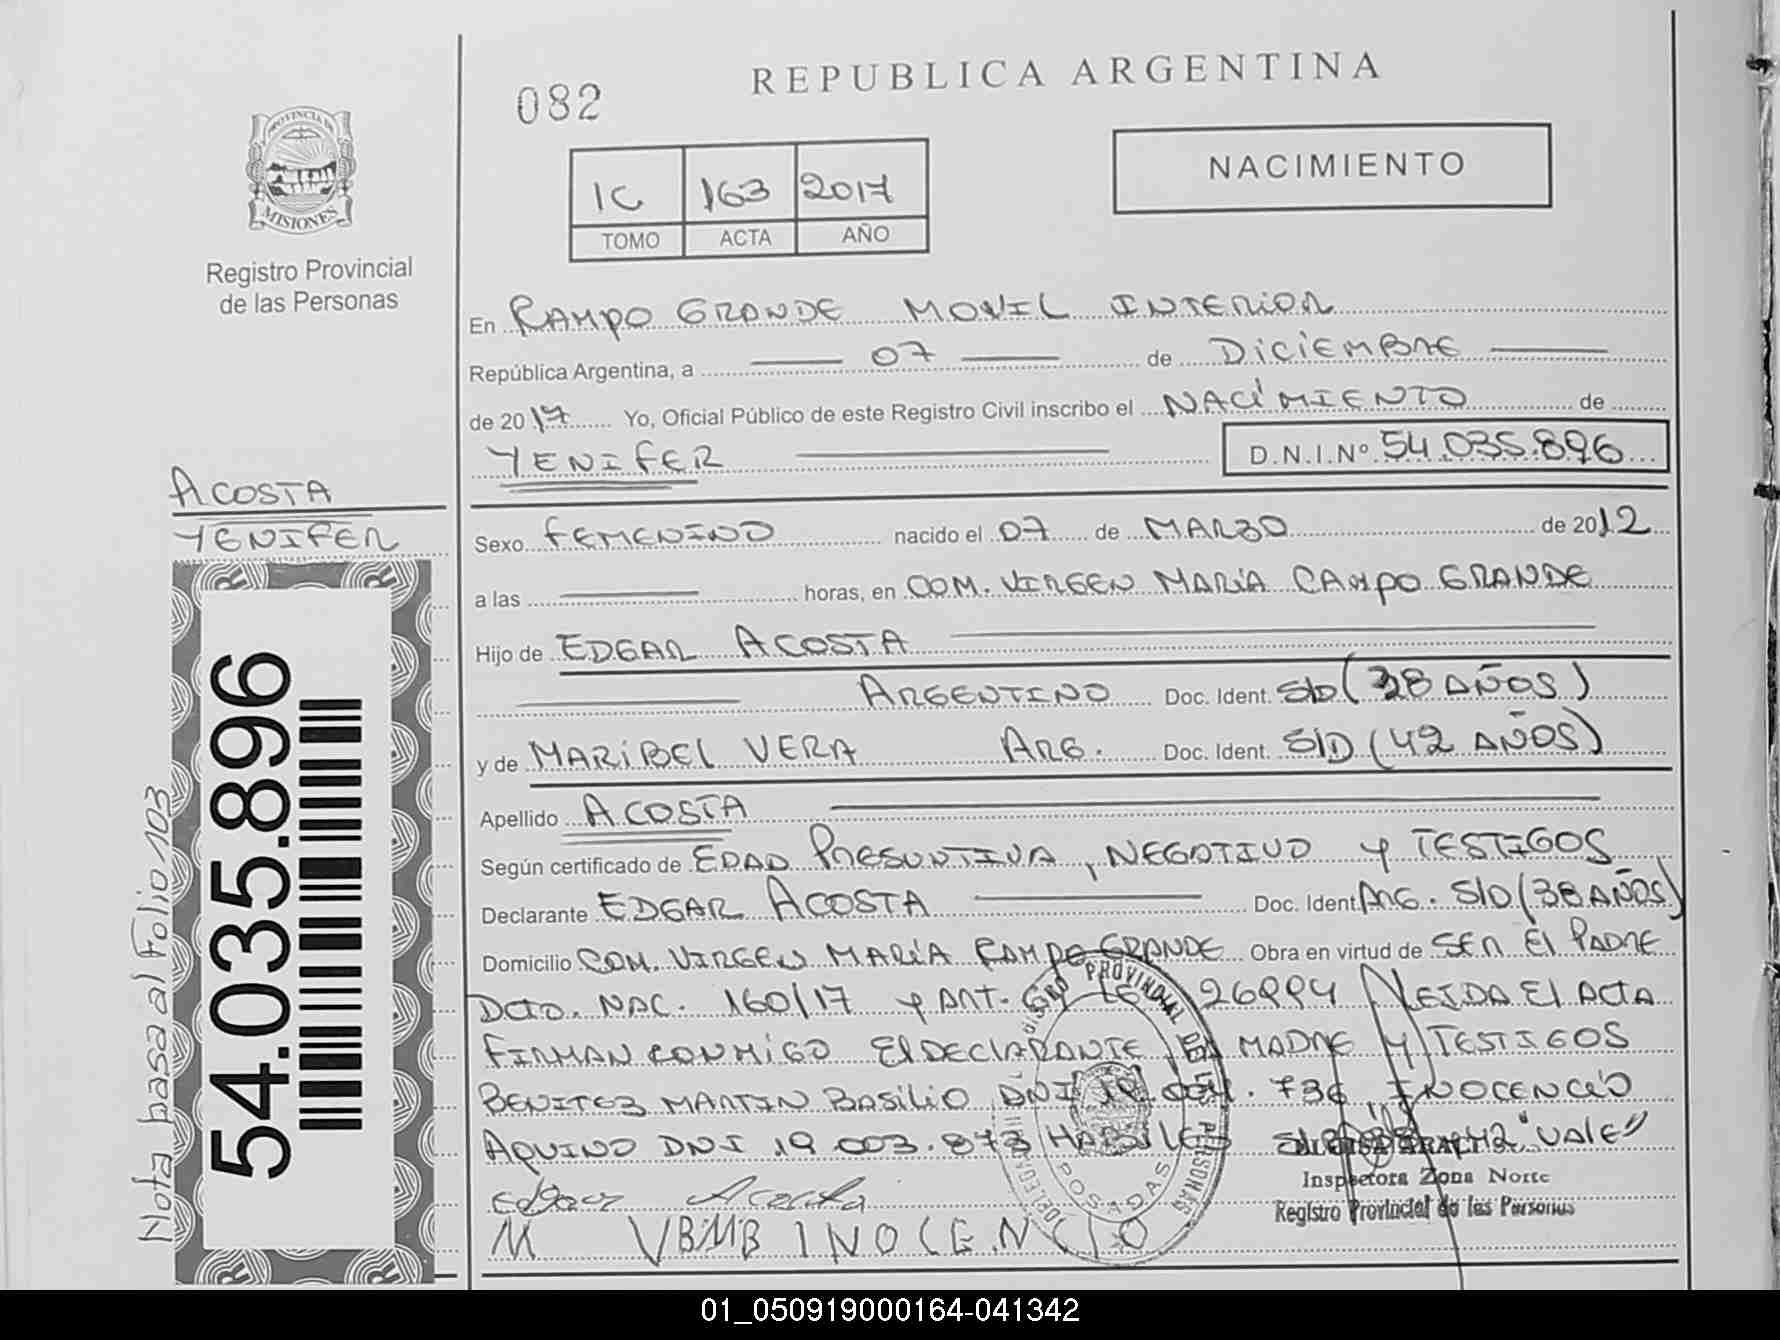 REPUBLICA ARGENTINA
082
PROVINCIA DE
MISIONES
Registro Provincial
de las Personas
1C 163 2017
TOMO ACTA AÑO
NACIMIENTO
En CAMPO GRANDE MOVIL INTERIOR
República Argentina, a 07 de DICIEMBRE
de 2017 Yo, Oficial Público de este Registro Civil inscribo el NACIMIENTO de
YENIFER D.N.I.Nº 54.035.896
ACOSTA
YENIFER
Sexo FEMENINO nacido el 07 de MARZO de 2012
a las horas, en COM. VIRGEN MARIA CAMPO GRANDE
Hijo de EDGAR ACOSTA
ARGENTINO Doc. Ident. S/D (38 AÑOS)
y de MARIBEL VERA ARG. Doc. Ident. S/D (42 AÑOS)
Apellido ACOSTA
Según certificado de EDAD PRESUNTIVA, NEGATIVO Y TESTIGOS
Declarante EDGAR ACOSTA Doc. Ident ARG. S/D (38 AÑOS)
Domicilio COM. VIRGEN MARÍA CAMPO GRANDE Obra en virtud de SER El PADRE
DCTO. NAC. 160/17 y ART. 26994 LEIDA El ACTA
FIRMAN CONMIGO El DECLARANTE, LA MADRE Y TESTIGOS
BENITEZ MARTIN BASILIO DNI 736, INOCENCIO
AQUINO DNI 19.003.873 HABILES "VALE"
Edgar Acosta
M VBMB INOCENCIO
Inspectora Zona Norte
Registro Provincial de las Personas
REGISTRO PROVINCIAL DE LAS PERSONAS
POSADAS
54.035.896
Nota pasa al Folio 103
01_050919000164-041342